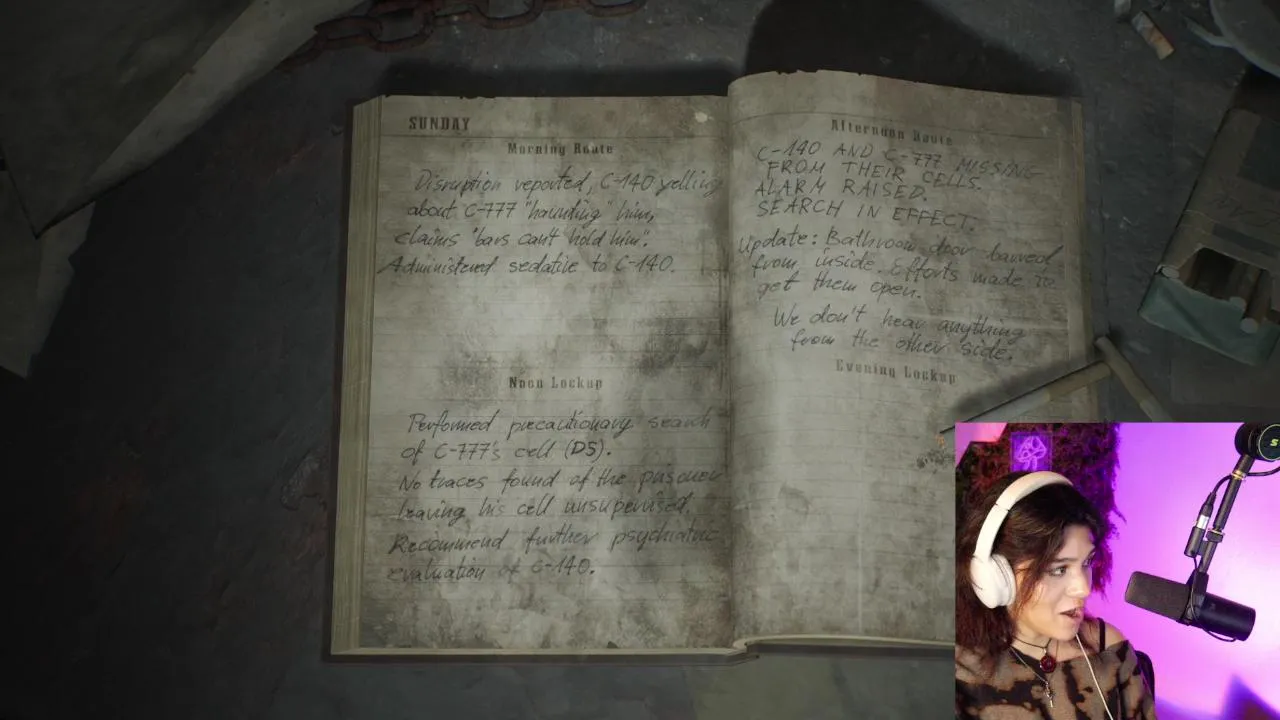 SUNDAY
Morning Route
Disruption reported, C-140 yelling
about C-777 "haunting" him,
claims "bars can't hold him".
Administered sedative to C-140.
Noon Lockup
Performed precautionary search
of C-777's cell (D5).
No traces found of the prisoner
leaving his cell unsupervised.
Recommend further psychiatric
evaluation of C-140.
Afternoon Route
C-140 AND C-777 MISSING
FROM THEIR CELLS.
ALARM RAISED.
SEARCH IN EFFECT.
Update: Bathroom door barred
from inside. Efforts made to
get them open.
We don't hear anything
from the other side.
Evening Lockup